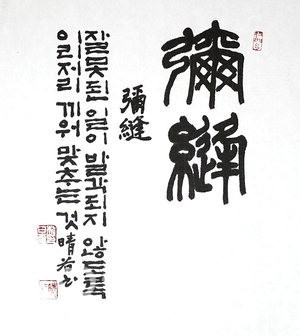 彌縫
彌縫
잘못된 일이 발각되지 않도록
이리저리 끼워 맞추는 것 晴谷書